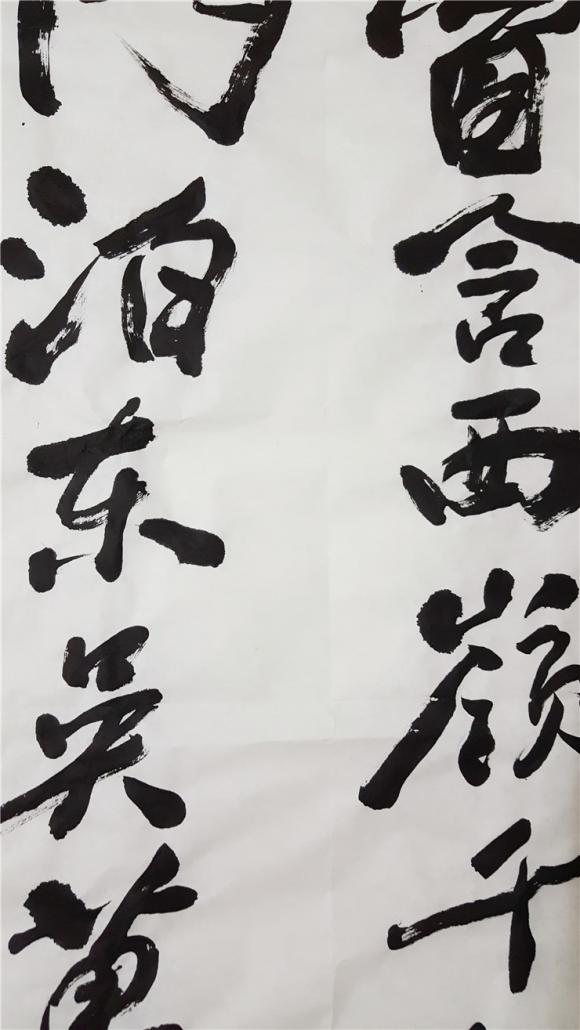 窗含西嶺千
门泊东吴萬